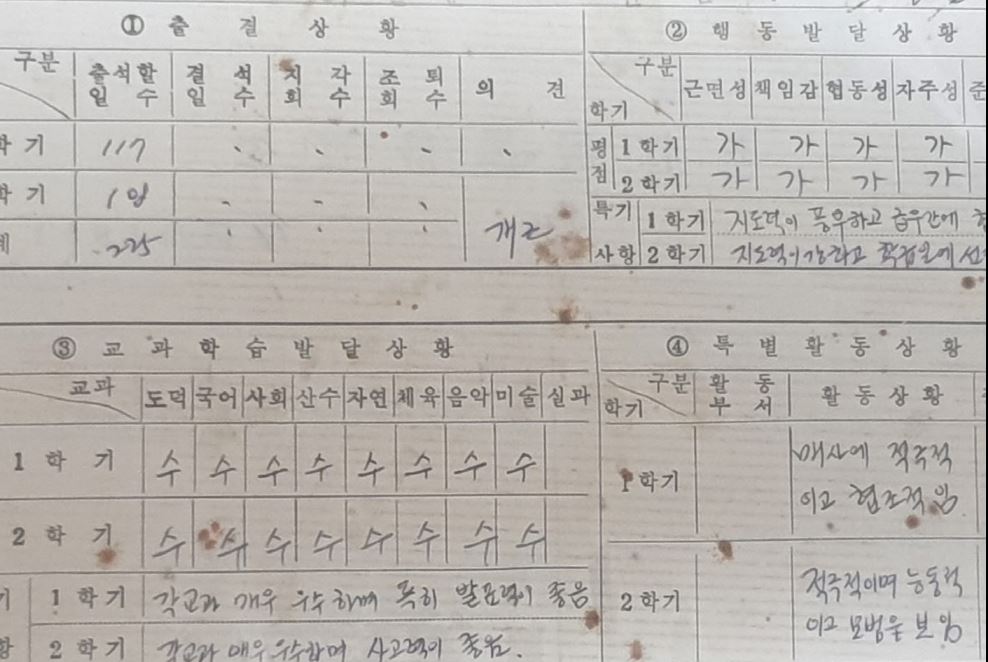 ① 출 결 상 황
구분 출석할 일 수 결 석 일 수 지 각 회 수 조 퇴 회 수 의 견
학 기 117
학 기
계 225 개근
② 행 동 발 달 상 황
구분 학기 근면성 책임감 협동성 자주성 준
평점 1 학기 가 가 가 가
2 학기 가 가 가 가
특기사항 1 학기 지도력이 풍부하고 급우간에
2 학기 지도력이 강하고 학급일에
③ 교 과 학 습 발 달 상 황
교과 도덕 국어 사회 산수 자연 체육 음악 미술 실과
1 학 기 수 수 수 수 수 수 수 수
2 학 기 수 수 수 수 수 수 수 수
1 학기 각교과 매우 우수하며 특히 발표력이 좋음
2 학기 각교과 매우 우수하며 사고력이 좋음.
④ 특 별 활 동 상 황
구분 학기 활 동 부 서 활 동 상 황
1학기 매사에 적극적
이고 협조적임
2학기 적극적이며 능동적
이고 모범을 보임